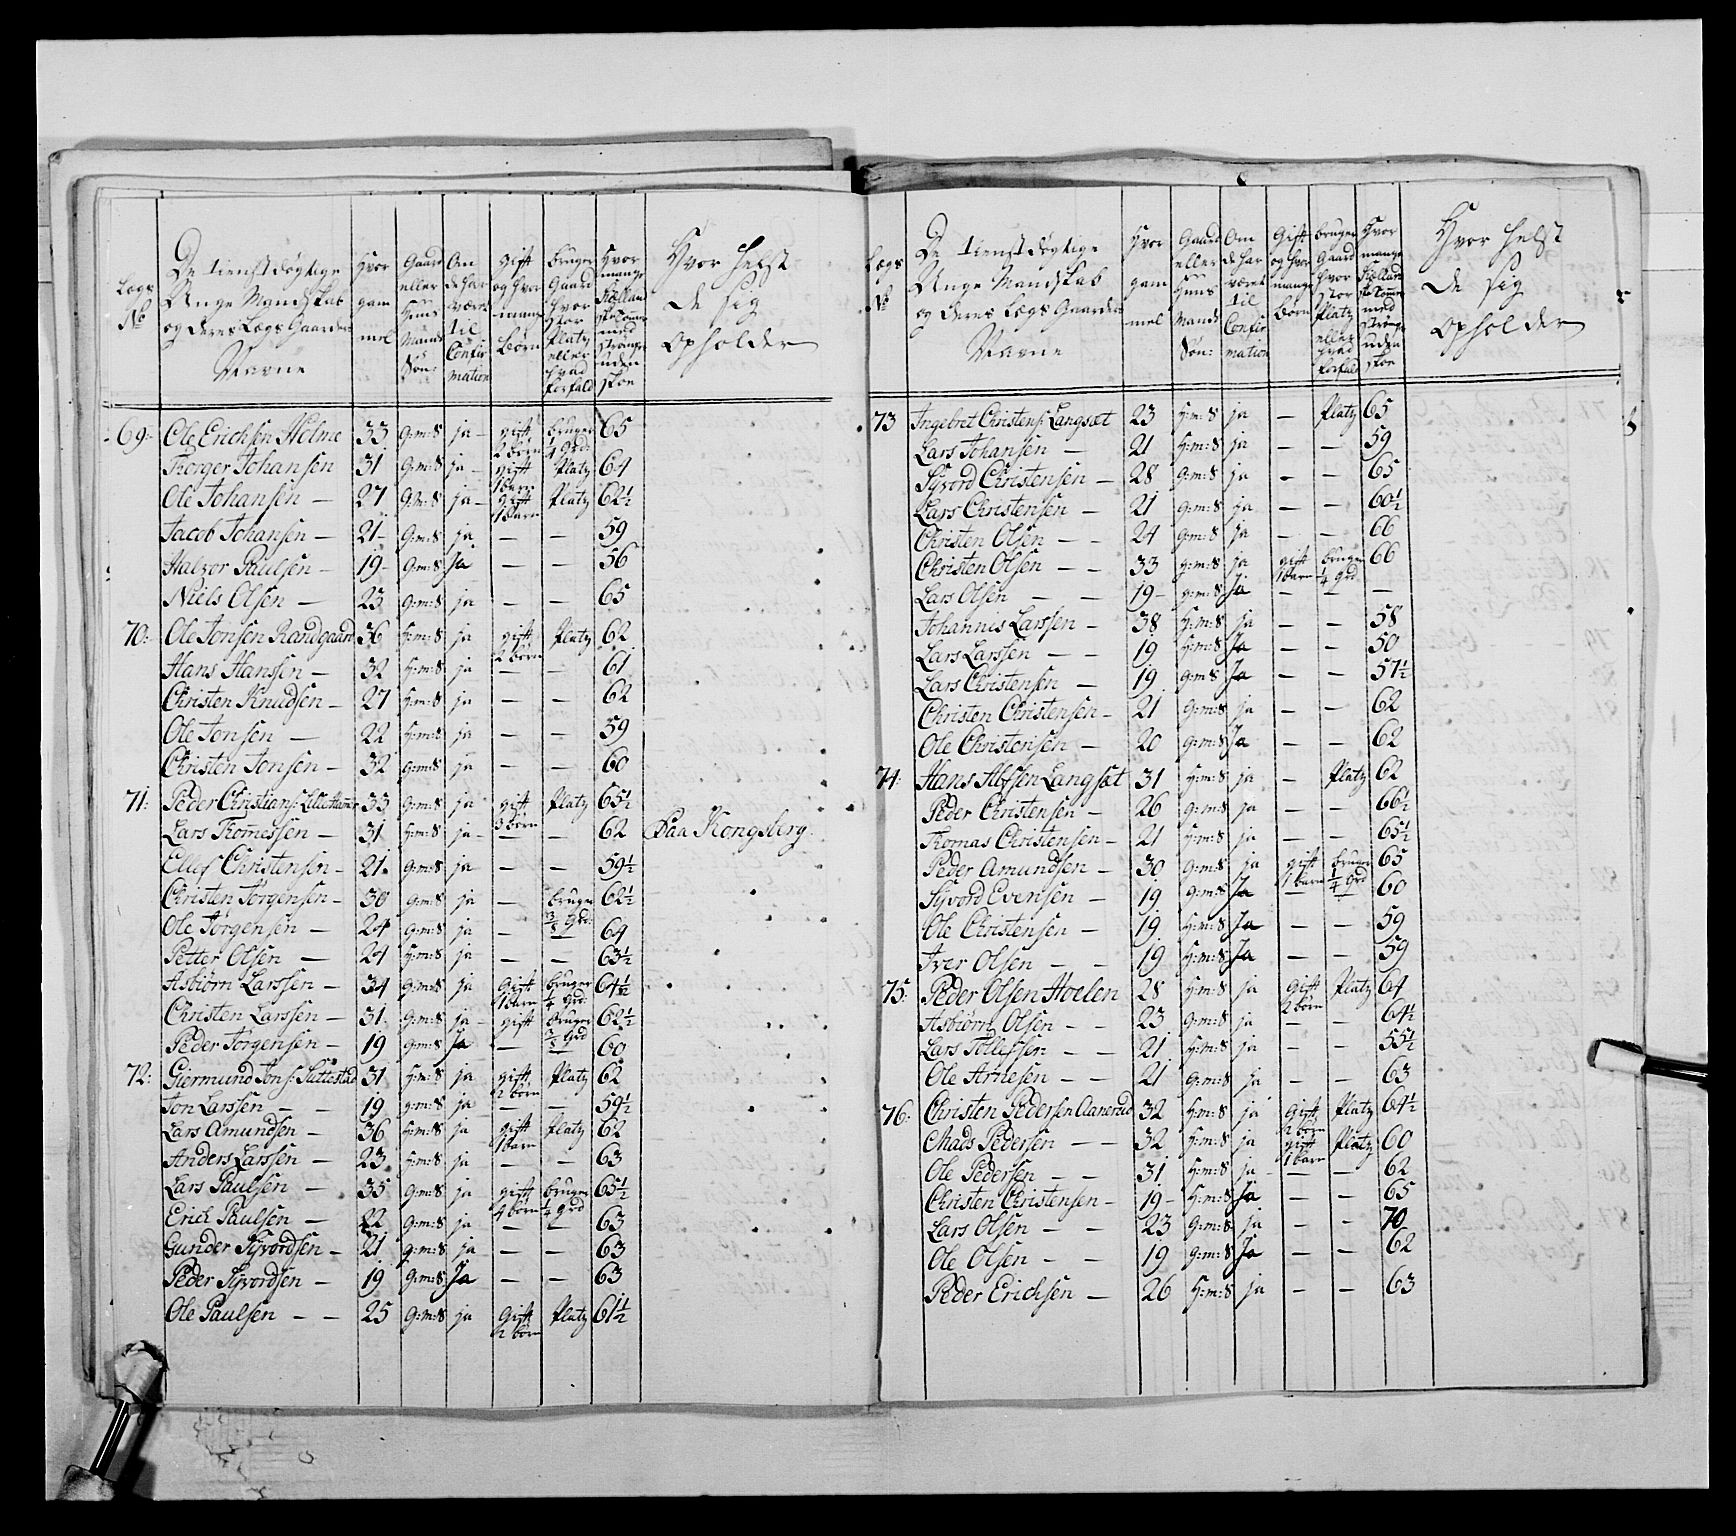 Lægs No
De tienstdøgtige Unge Mandskab og deres Lægs Gaarders Navne
Hvor gam mel
Gaard eller Huus Mands Søn:
Om de har været til Confir mation
gift og hvor mange børn
bruger Gaard hvor stor Platz eller hvad forfald
Hvor mange Siællands stk Tomme med strømper uden skoe
Hvor helst de sig opholder
69: Ole Erichsen Holme 33 G:m:S ja gift 2 børn bruger 1/4 Grd: 65
Torger Johansen 31 G:m:S ja gift 1 barn Platz 64
Ole Johansen 27 G:m:S ja gift 1 barn Platz 62½
Jacob Johansen 21 G:m:S ja — — 59
Halvor Paulsen 19 G:m:S Ja — — 56
Niels Olsen 23 G:m:S ja — — 65
70: Ole Jonsen Randgaard 36 H:m:S ja gift 2 børn Platz 62
Hans Hanssen 32 H:m:S ja — — 61
Christen Knudsen 27 H:m:S ja — — 62
Ole Jonsen 22 H:m:S ja — — 59
Christen Jonsen 32 G:m:S ja — — 60
71: Peder Christians: Lille Hamer 33 G:m:S ja gift 3 børn Platz 65½
Lars Thomessen 31 H:m:S ja — — 62 Paa Kongsberg
Ellef Christensen 21 G:m:S ja — — 59½
Christen Jørgensen 30 G:m:S ja — bruger 3/8 Grd: 62½
Ole Jørgensen 24 G:m:S ja — — 64
Petter Olsen 24 H:m:S ja — — 63½
Asbiørn Larssen 34 G:m:S ja Gift 1 barn bruger 1/4 Grd: 64½
Christen Larssen 31 G:m:S ja gift bruger 3/8 Grd 62½
Peder Jørgensen 19 G:m:S Ja — — 60
72: Giermund Jons: Suttestad 31 H:m:S ja gift 2 børn Platz 62
Jon Larssen 19 G:m:S ja — — 59½
Lars Amundsen 36 H:m:S ja gift 1 barn Platz 62
Anders Larssen 23 H:m:S ja — — 63
Lars Paulsen 35 G:m:S ja gift 4 børn bruger 1/4 Grd 65½
Erich Paulsen 22 G:m:S ja — — 63
Gunder Syvordsen 21 G:m:S ja — — 63
Peder Syvordsen 19 G:m:S Ja — — 63
Ole Paulsen 25 G:m:S ja Gift 2 børn Platz 61½
Lægs No
De tienstdøgtige Unge Mandskab og deres Lægs Gaarders Navne
Hvor gam mel
Gaard eller Huus Mands Søn:
Om de har været til Confir mation
Gift og hvor mange børn
bruger Gaard hvor stor Platz eller hvad forfald
Hvor mange Siællands stk Tomme med strømper uden skoe
Hvor helst de sig opholder
73 Ingebret Christens: Langsæt 23 H:m:S ja — Platz 65
Lars Johansen 21 H:m:S ja — — 59
Syvord Christensen 28 G:m:S ja — — 65
Lars Christensen 21 G:m:S ja — — 60½
Christen Olsen 24 G:m:S ja — — 66
Christen Olsen 33 G:m:S ja gift 1 barn bruger 1/4 Grd 66
Lars Olsen 19 G:m:S Ja — — —
Johannes Larssen 38 H:m:S ja — — 58
Lars Larssen 19 H:m:S Ja — — 50
Lars Christensen 19 G:m:S Ja — — 57½
Christen Christensen 21 G:m:S ja — — 62
Ole Christensen 20 G:m:S Ja — — 62
74: Hans Alfsen Langsæt 31 H:m:S ja — Platz 62
Peder Christensen 26 G:m:S ja — — 66½
Thomas Christensen 21 H:m:S ja — — 65½
Peder Amundsen 30 G:m:S ja gift 1 barn bruger 1/4 Grd 65
Syvord Evensen 19 G:m:S Ja — — 60
Ole Christensen 19 H:m:S Ja — — 59
Iver Olsen 19 H:m:S Ja — — 59
75: Peder Olsen Hoelen 28 H:m:S ja Gift 2 børn Platz 64
Asbiørn Olsen 23 G:m:S ja — — 64½
Lars Tollefsen 21 H:m:S ja — — 55½
Ole Arnesen 21 G:m:S ja — — 63
76: Christen Pedersen Aanerud 32 H:m:S ja Gift 2 børn Platz 64½
Mads Pedersen 32 H:m:S ja gift 1 barn Platz 60
Ole Pedersen 31 H:m:S ja — — 62
Christen Christensen 19 H:m:S Ja — — 65
Lars Olsen 23 G:m:S ja — — 70
Ole Olsen 19 G:m:S Ja — — 62
Peder Erichsen 26 H:m:S ja — — 63